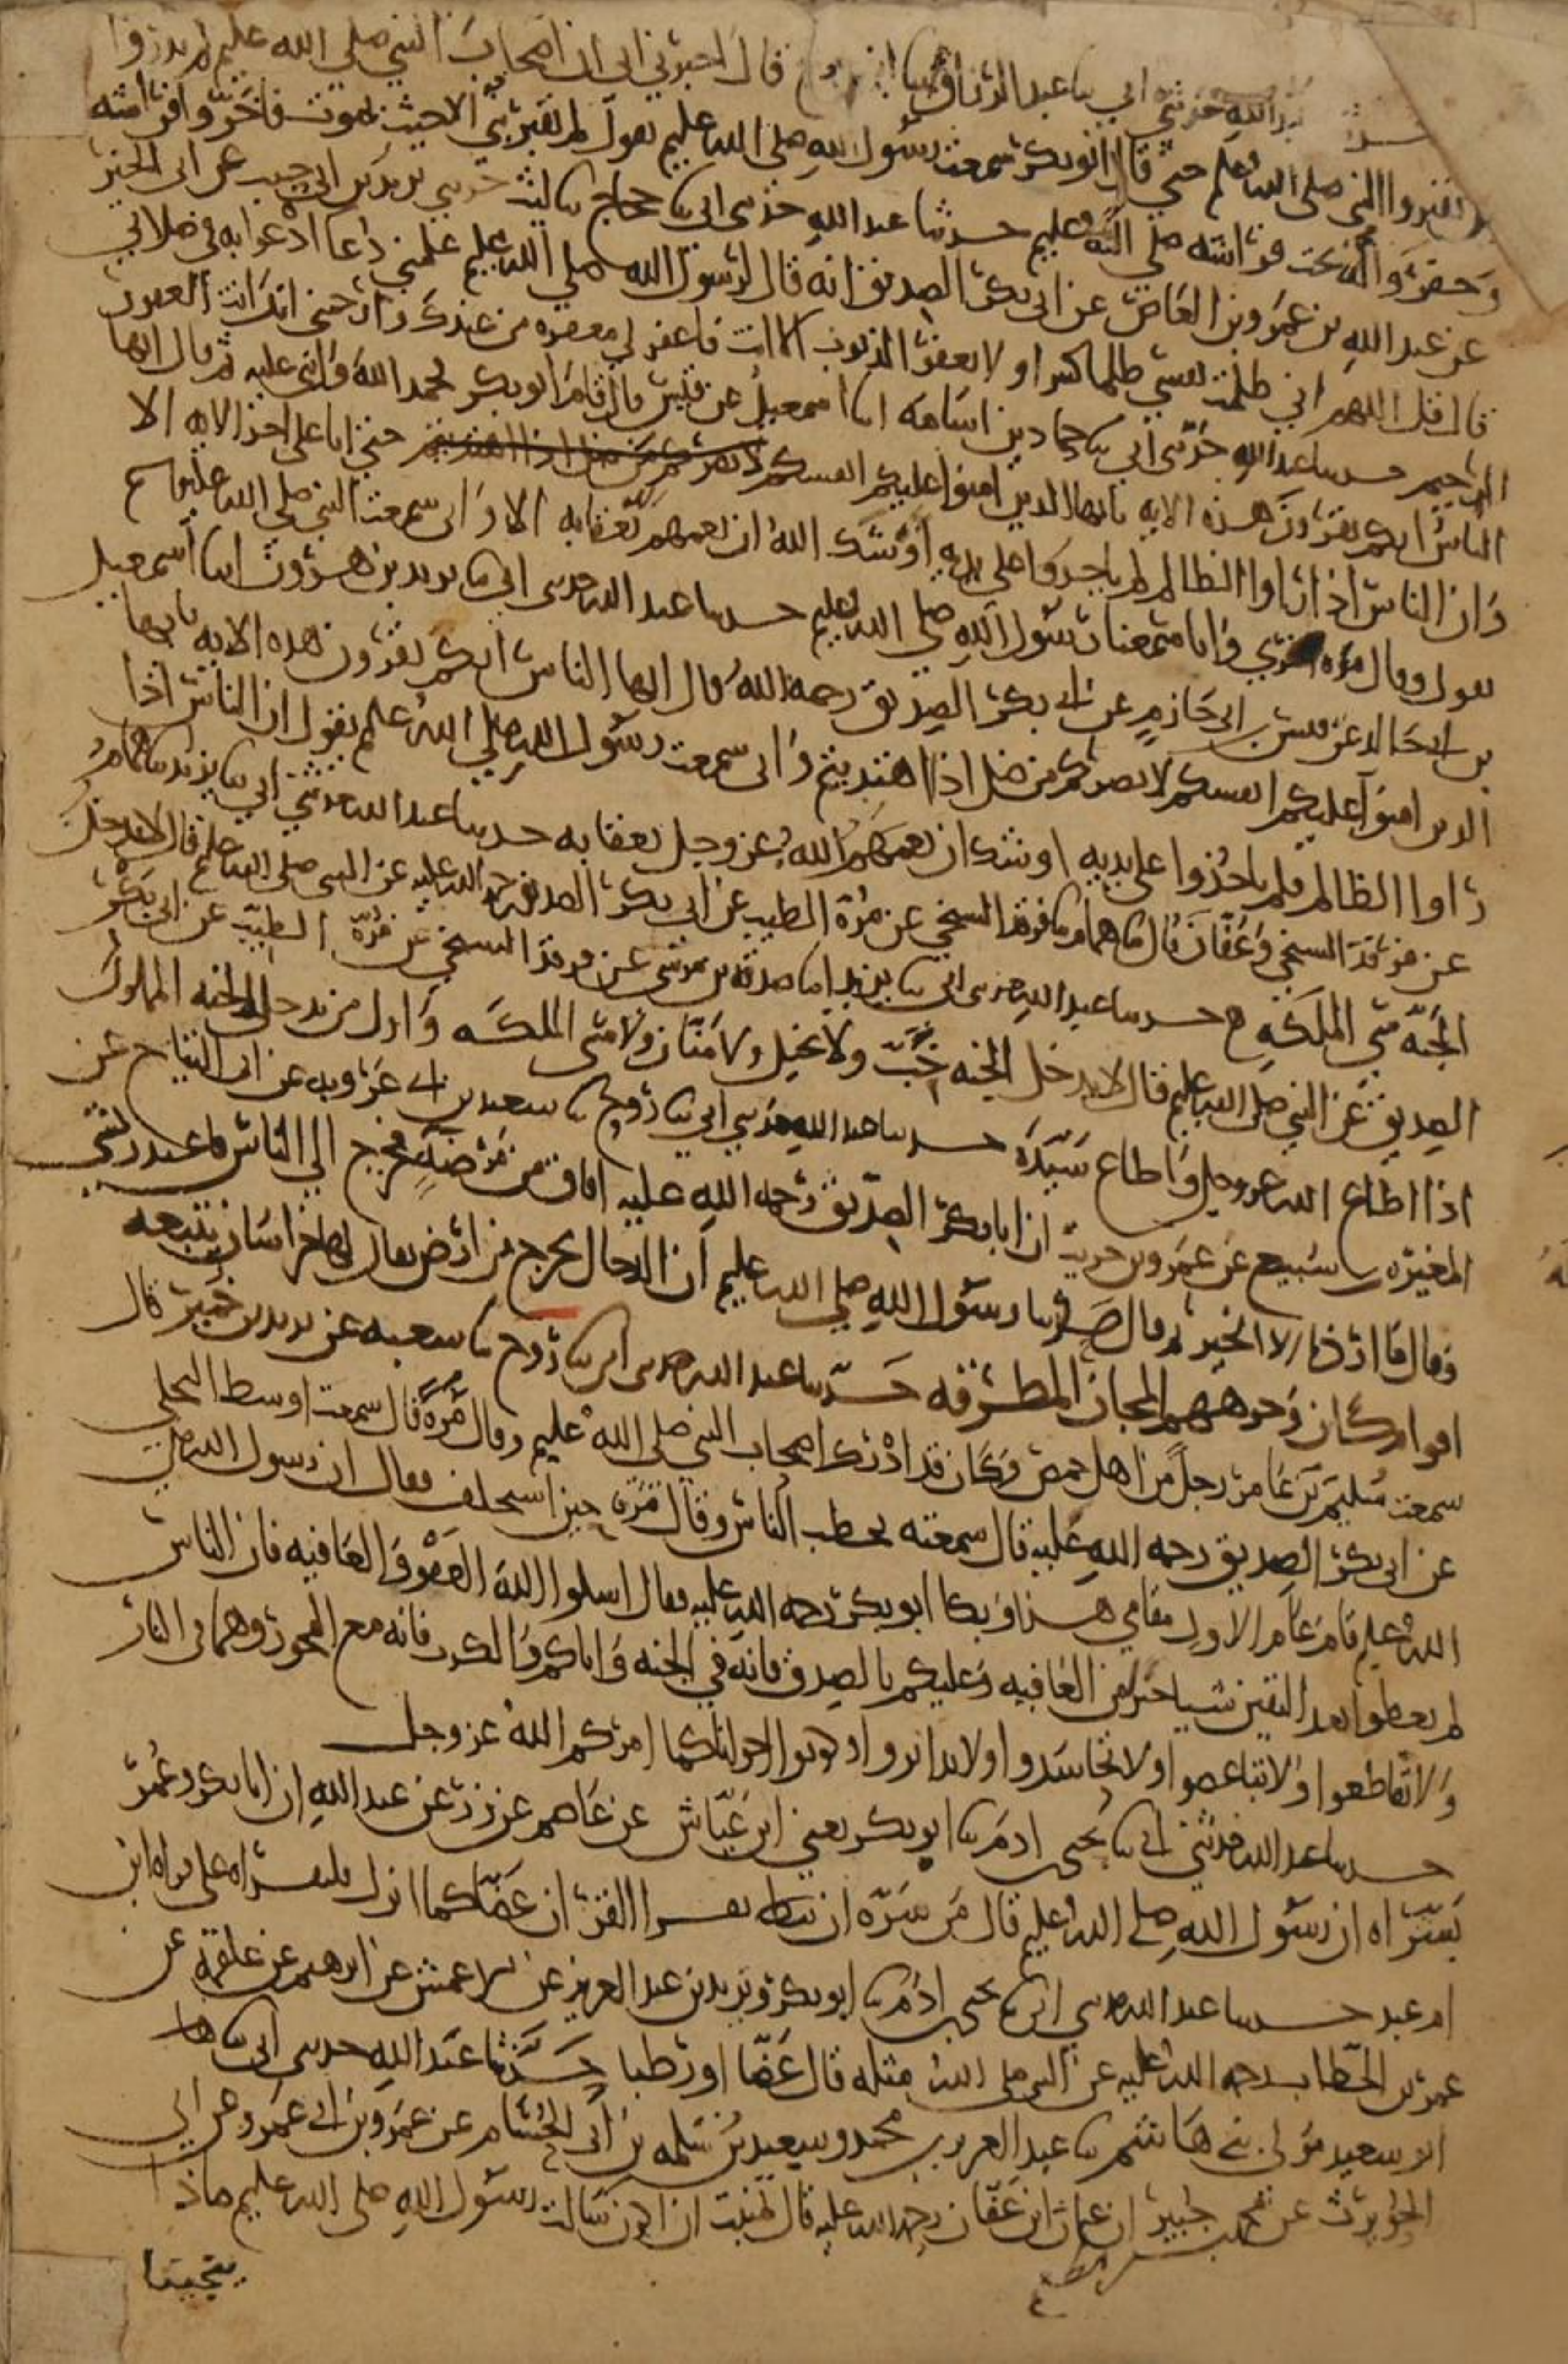 عبد الله حدثني ابي سا عبد الرزاق قال اخبرني ابي ان اصحاب النبي صلى الله عليه لم يدروا
يقبروا النبي صلى الله عليه حتى قال ابو بكر سمعت رسول الله صلى الله عليه يقول لم يقبر نبي الا حيث يموت فاخروا فراشه
وحفروا له تحت فراشه صلى الله عليه حدسا عبد الله حدثني ابي سا حجاج سا ليث حدثني يزيد بن ابي حبيب عن ابي الخير
عن عبد الله بن عمرو بن العاص عن ابي بكر الصديق انه قال لرسول الله صلى الله عليه علمني دعا ادعوا به في صلاتي
قال قل اللهم اني ظلمت نفسي ظلما كثيرا ولا يغفر الذنوب الا انت فاغفر لي مغفره من عندك وارحمني انك انت الغفور
الرحيم حدسا عبد الله حدثني ابي سا حماد بن اسامه انا اسمعيل عن قيس قال قام ابو بكر فحمد الله واثنى عليه ثم قال ايها
الناس انكم تقرون هذه الايه يايها الذين امنوا عليكم انفسكم لا يضركم من ضل اذا اهتديتم حتى اتا على اخر الايه الا
وان الناس اذا راوا الظالم لم ياخذوا على يديه اوشك الله ان يعمهم بعقابه الا واني سمعت النبي صلى الله عليه
يقول وقال مره اخرى وانا سمعنا رسول الله صلى الله عليه حدسا عبد الله حدثني ابي سا يزيد بن هرون انا اسمعيل
بن ابي خالد عن قيس بن ابي حازم عن ابي بكر الصديق رحمه الله قال ايها الناس انكم تقرون هذه الايه يايها
الذين امنوا عليكم انفسكم لا يضركم من ضل اذا اهتديتم واني سمعت رسول الله صلى الله عليه يقول ان الناس اذا
راوا الظالم فلم ياخذوا على يديه اوشك ان يعمهم الله عز وجل بعقابه حدسا عبد الله حدثني ابي سا يزيد سا همام
عن فرقد السبخي وعفان قال سا همام سا فرقد السبخي عن مرة الطيب عن ابي بكر الصديق رحمه الله عليه عن النبي صلى الله عليه قال لا يدخل
الجنة سي الملكه ح حدسا عبد الله حدثني ابي سا يزيد انا صدقه بن موسى عن فرقد السبخي عن مرة الطيب عن ابي بكر
الصديق عن النبي صلى الله عليه قال لا يدخل الجنه خب ولا بخيل ولا منان ولا سي الملكه واول من يدخل الجنه المملوك
اذا اطاع الله عز وجل واطاع سيده حدسا عبد الله حدثني ابي سا روح سا سعيد بن ابي عروبه عن ابي التياح عن
المغيره بن سبيع عن عمرو بن حريث ان ابا بكر الصديق رحمه الله عليه افاق من مرضه فخرج الى الناس فاعتذر بشي
وقال ما اردنا الا الخير ثم قال حدثنا رسول الله صلى الله عليه ان الدجال يخرج من ارض يقال لها خراسان يتبعه
اقوام كان وجوههم المجان المطرقه حدسا عبد الله حدثني ابي سا روح سا شعبه عن يزيد بن خمير قال
سمعت سليم بن عامر رجلا من اهل حمص وكان قد ادرك اصحاب النبي صلى الله عليه وقال مره قال سمعت اوسط البجلي
عن ابي بكر الصديق رحمه الله عليه قال سمعته يخطب الناس وقال مره حين استخلف فقال ان رسول الله صلى
الله عليه قام عام الاول مقامي هذا وبكا ابو بكر رحمه الله عليه فقال اسلوا الله العفو والعافيه فان الناس
لم يعطوا بعد اليقين شيا خيرا من العافيه وعليكم بالصدق فانه في الجنه واياكم والكذب فانه مع الفجور وهما في النار
ولا تقاطعوا ولا تباغضوا ولا تحاسدوا ولا تدابروا وكونوا اخوانا كما امركم الله عز وجل
حدسا عبد الله حدثني ابي سا يحيى بن ادم سا ابو بكر يعني ابن عياش عن عاصم عن زر عن عبد الله ان ابا بكر وعمر
بشراه ان رسول الله صلى الله عليه قال من سره ان يقرا القران غضا كما انزل فليقراه على قراه ابن
ام عبد حدسا عبد الله حدثني ابي سا يحيى بن ادم سا ابو بكر ويزيد بن عبد العزيز عن الاعمش عن ابرهيم عن علقمه عن
عمر بن الخطاب رحمه الله عليه عن النبي صلى الله مثله قال غضا او رطبا حدثنا عبد الله حدثني ابي سا
ابو سعيد مولى بني هاشم سا عبد العزيز بن محمد وسعيد بن سلمه بن ابي الحسام عن عمرو بن ابي عمرو عن ابي
الحويرث عن محمد بن جبير ان عثمان بن عفان رحمه الله عليه قال تمنيت ان اكون سالت رسول الله صلى الله عليه ماذا
ينجينا